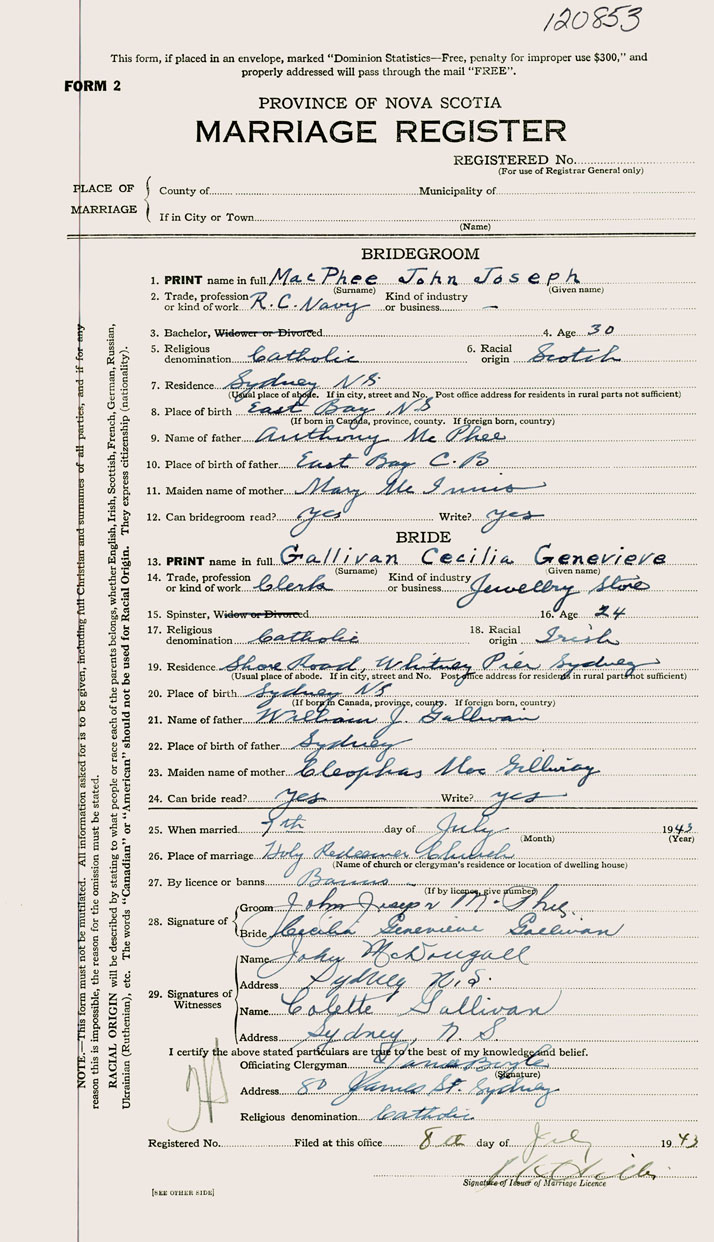 120853
This form, if placed in an envelope, marked "Dominion Statistics—Free, penalty for improper use $300," and
properly addressed will pass through the mail "FREE".
FORM 2
PROVINCE OF NOVA SCOTIA
MARRIAGE REGISTER
REGISTERED No.
(For use of Registrar General only)
PLACE OF MARRIAGE
County of Municipality of
If in City or Town
(Name)
BRIDEGROOM
1. PRINT name in full MacPhee John Joseph
(Surname) (Given name)
2. Trade, profession or kind of work R.C. Navy Kind of industry or business —
3. Bachelor, Widower or Divorced 4. Age 30
5. Religious denomination Catholic 6. Racial origin Scotch
7. Residence Sydney NS
(Usual place of abode. If in city, street and No. Post office address for residents in rural parts not sufficient)
8. Place of birth East Bay NS
(If born in Canada, province, county. If foreign born, country)
9. Name of father Anthony Mc Phee
10. Place of birth of father East Bay C.B
11. Maiden name of mother Mary Mc Innis
12. Can bridegroom read? yes Write? yes
BRIDE
13. PRINT name in full Gallivan Cecilia Genevieve
(Surname) (Given name)
14. Trade, profession or kind of work Clerk Kind of industry or business Jewellry Store
15. Spinster, Widow or Divorced 16. Age 24
17. Religious denomination Catholic 18. Racial origin Irish
19. Residence Shore Road, Whitney Pier Sydney
(Usual place of abode. If in city, street and No. Post office address for residents in rural parts not sufficient)
20. Place of birth Sydney NS
(If born in Canada, province, county. If foreign born, country)
21. Name of father William J. Gallivan
22. Place of birth of father Sydney
23. Maiden name of mother Cleophas Mac Gillivray
24. Can bride read? yes Write? yes
25. When married 7th day of July 1943
(Month) (Year)
26. Place of marriage Holy Redeemer Church
(Name of church or clergyman's residence or location of dwelling house)
27. By licence or banns Banns
(If by licence, give number)
28. Signature of
Groom John Joseph McPhee
Bride Cecilia Genevieve Gallivan
29. Signatures of Witnesses
Name John McDougall
Address Sydney N.S.
Name Colette Gallivan
Address Sydney, N.S.
I certify the above stated particulars are true to the best of my knowledge and belief.
Officiating Clergyman Boyle
(Signature)
Address 80 James St. Sydney
Religious denomination Catholic
Registered No. Filed at this office 8th day of July 1943
Signature of Issuer of Marriage Licence
[SEE OTHER SIDE]
NOTE.—This form must not be mutilated. All information asked for is to be given, including full Christian and surnames of all parties, and if for any
reason this is impossible, the reason for the omission must be stated.
RACIAL ORIGIN will be described by stating to what people or race each of the parents belongs, whether English, Irish, Scottish, French, German, Russian,
Ukrainian (Ruthenian), etc. The words "Canadian" or "American" should not be used for Racial Origin. They express citizenship (nationality).